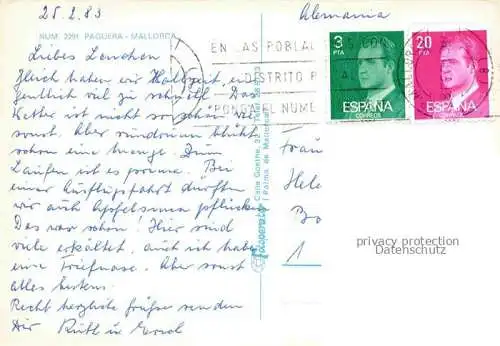 25.2.83
Alemania
NUM. 2291 PAGUERA - MALLORCA
Liebes Lenchen
Gleich haben wir Halbzeit, ei
gentlich viel zu schnell. Das
Wetter ist nicht so schön wie
sonst. Aber rundrum blüht
schon eine Menge. Zum
Laufen ist es prima. Bei
einer Ausflugsfahrt durften
wir auch Apfelsinen pflücken
Das war schön! Hier sind
viele erkältet, auch ich habe
eine Triefnase. Aber sonst
alles bestens.
Recht herzliche Grüße senden
Dir Ruth u.
EN LAS POBLA
DISTRITO P
PONGA EL NUME
3
PTA
ESPAÑA
CORREOS
20
PTA
ESPAÑA
CORREOS
Calle Goethe, 22
Palma de Mallorca
Frau
Hele
Bo
1
privacy protection
Datenschutz